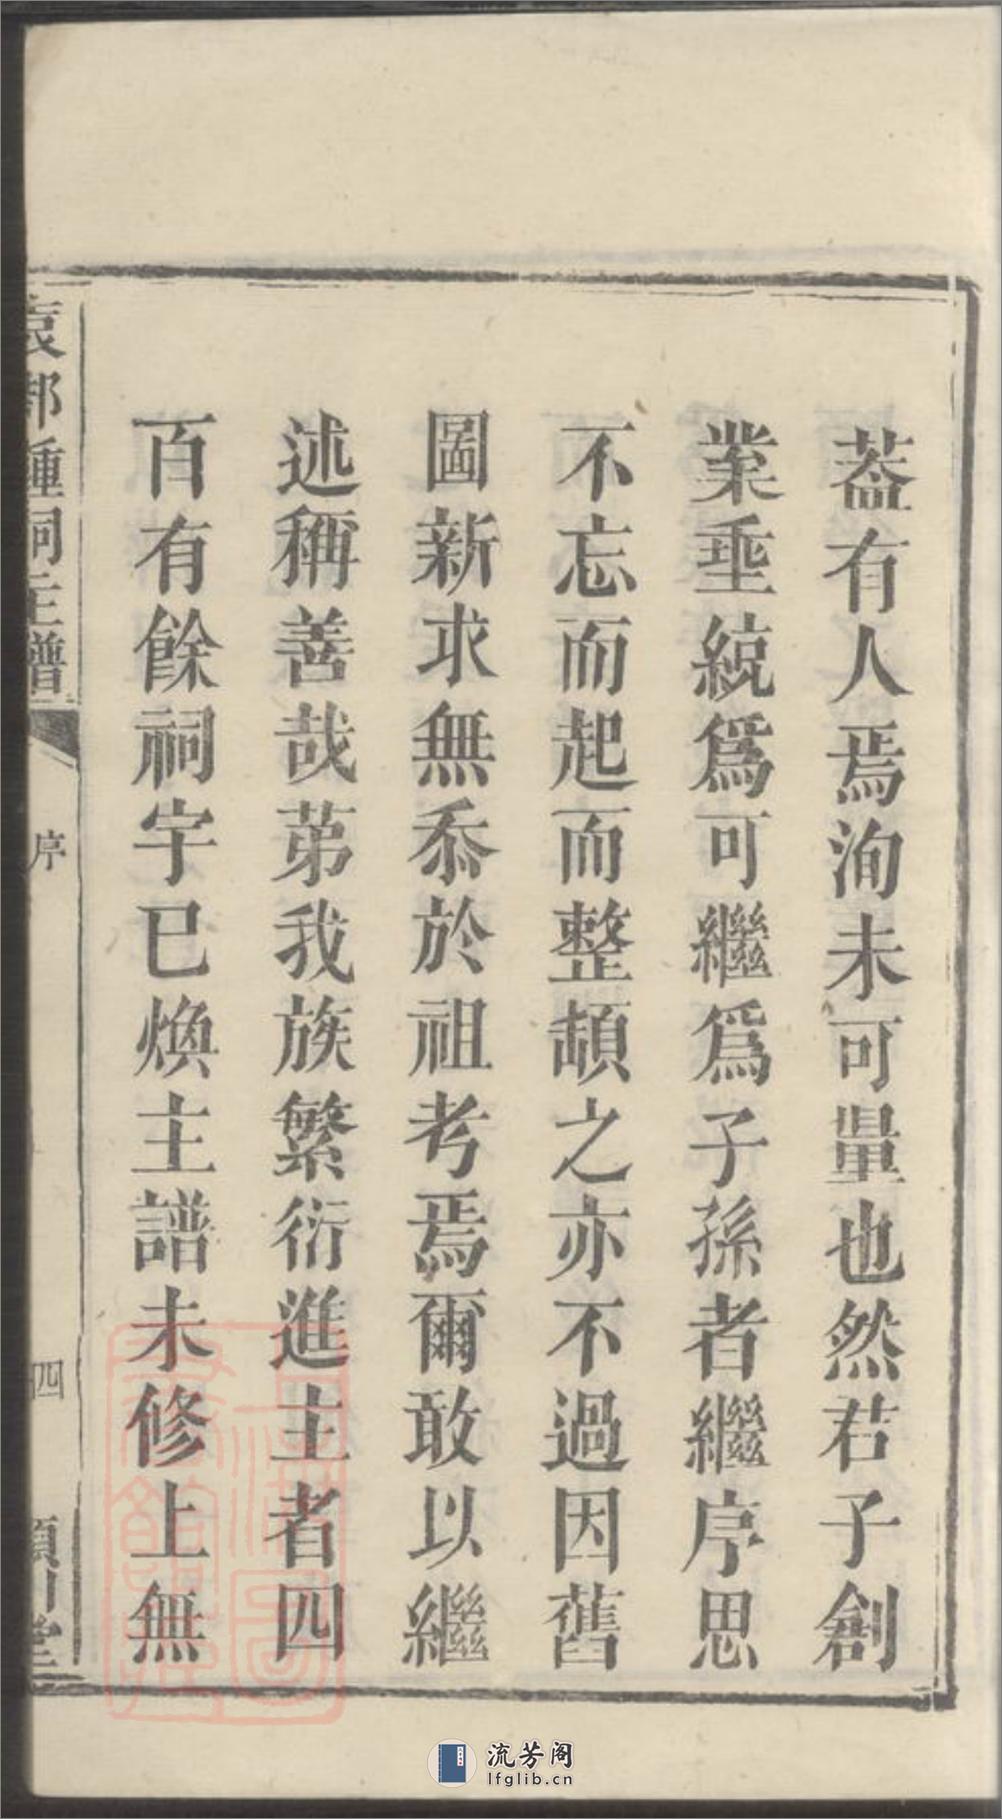 蓋有人焉洵未可量也然若子創
業垂統爲可繼爲子孫者繼序思
不忘而起而整頓之亦不過因舊
圖新求無忝於祖考焉爾敢以繼
述稱善哉第我族繁衍進主者四
百有餘祠宇已煥主譜未修上無
袁郡鍾祠主譜
序
四
潁川堂
流芳阁
lfglib.cn